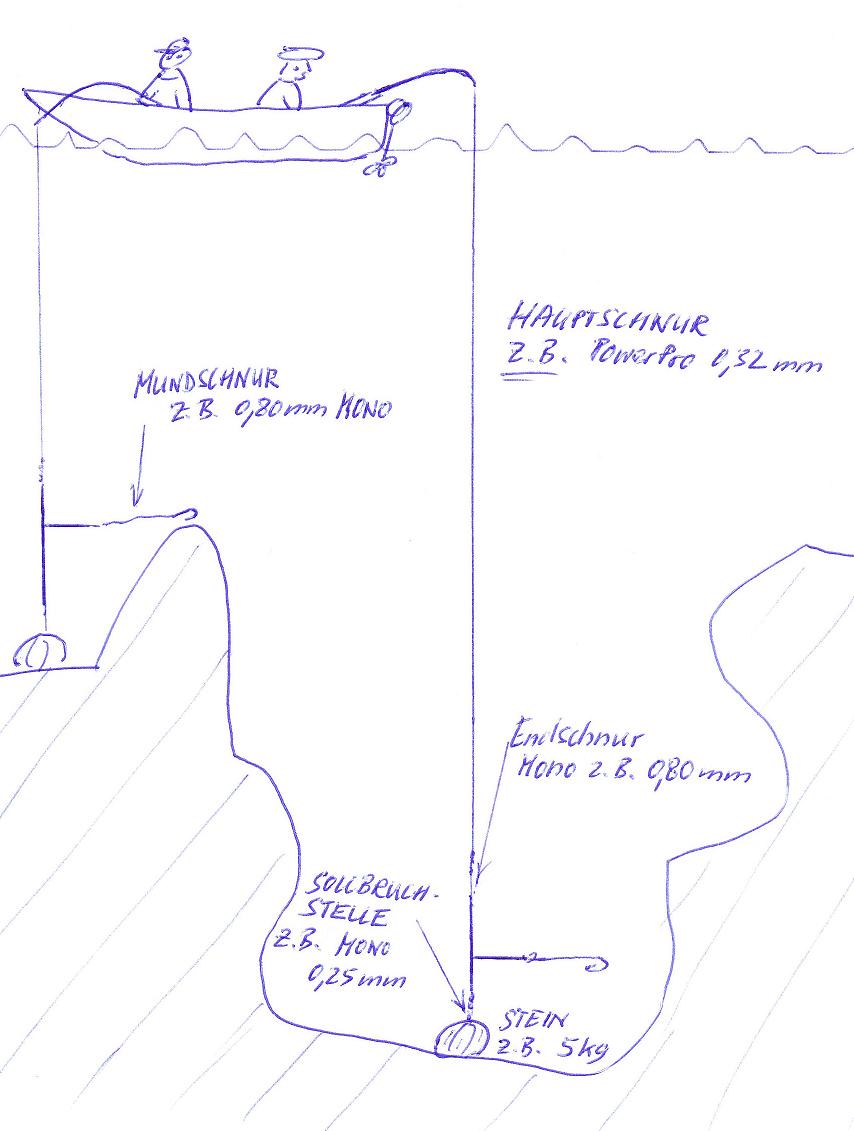 HAUPTSCHNUR
Z.B. PowerPro 0,32mm
MUNDSCHNUR
Z.B. 0,80mm MONO
Endschnur
MONO z.B. 0,80mm
SOLLBRUCH-
STELLE
Z.B. MONO
0,25mm
STEIN
Z.B. 5kg